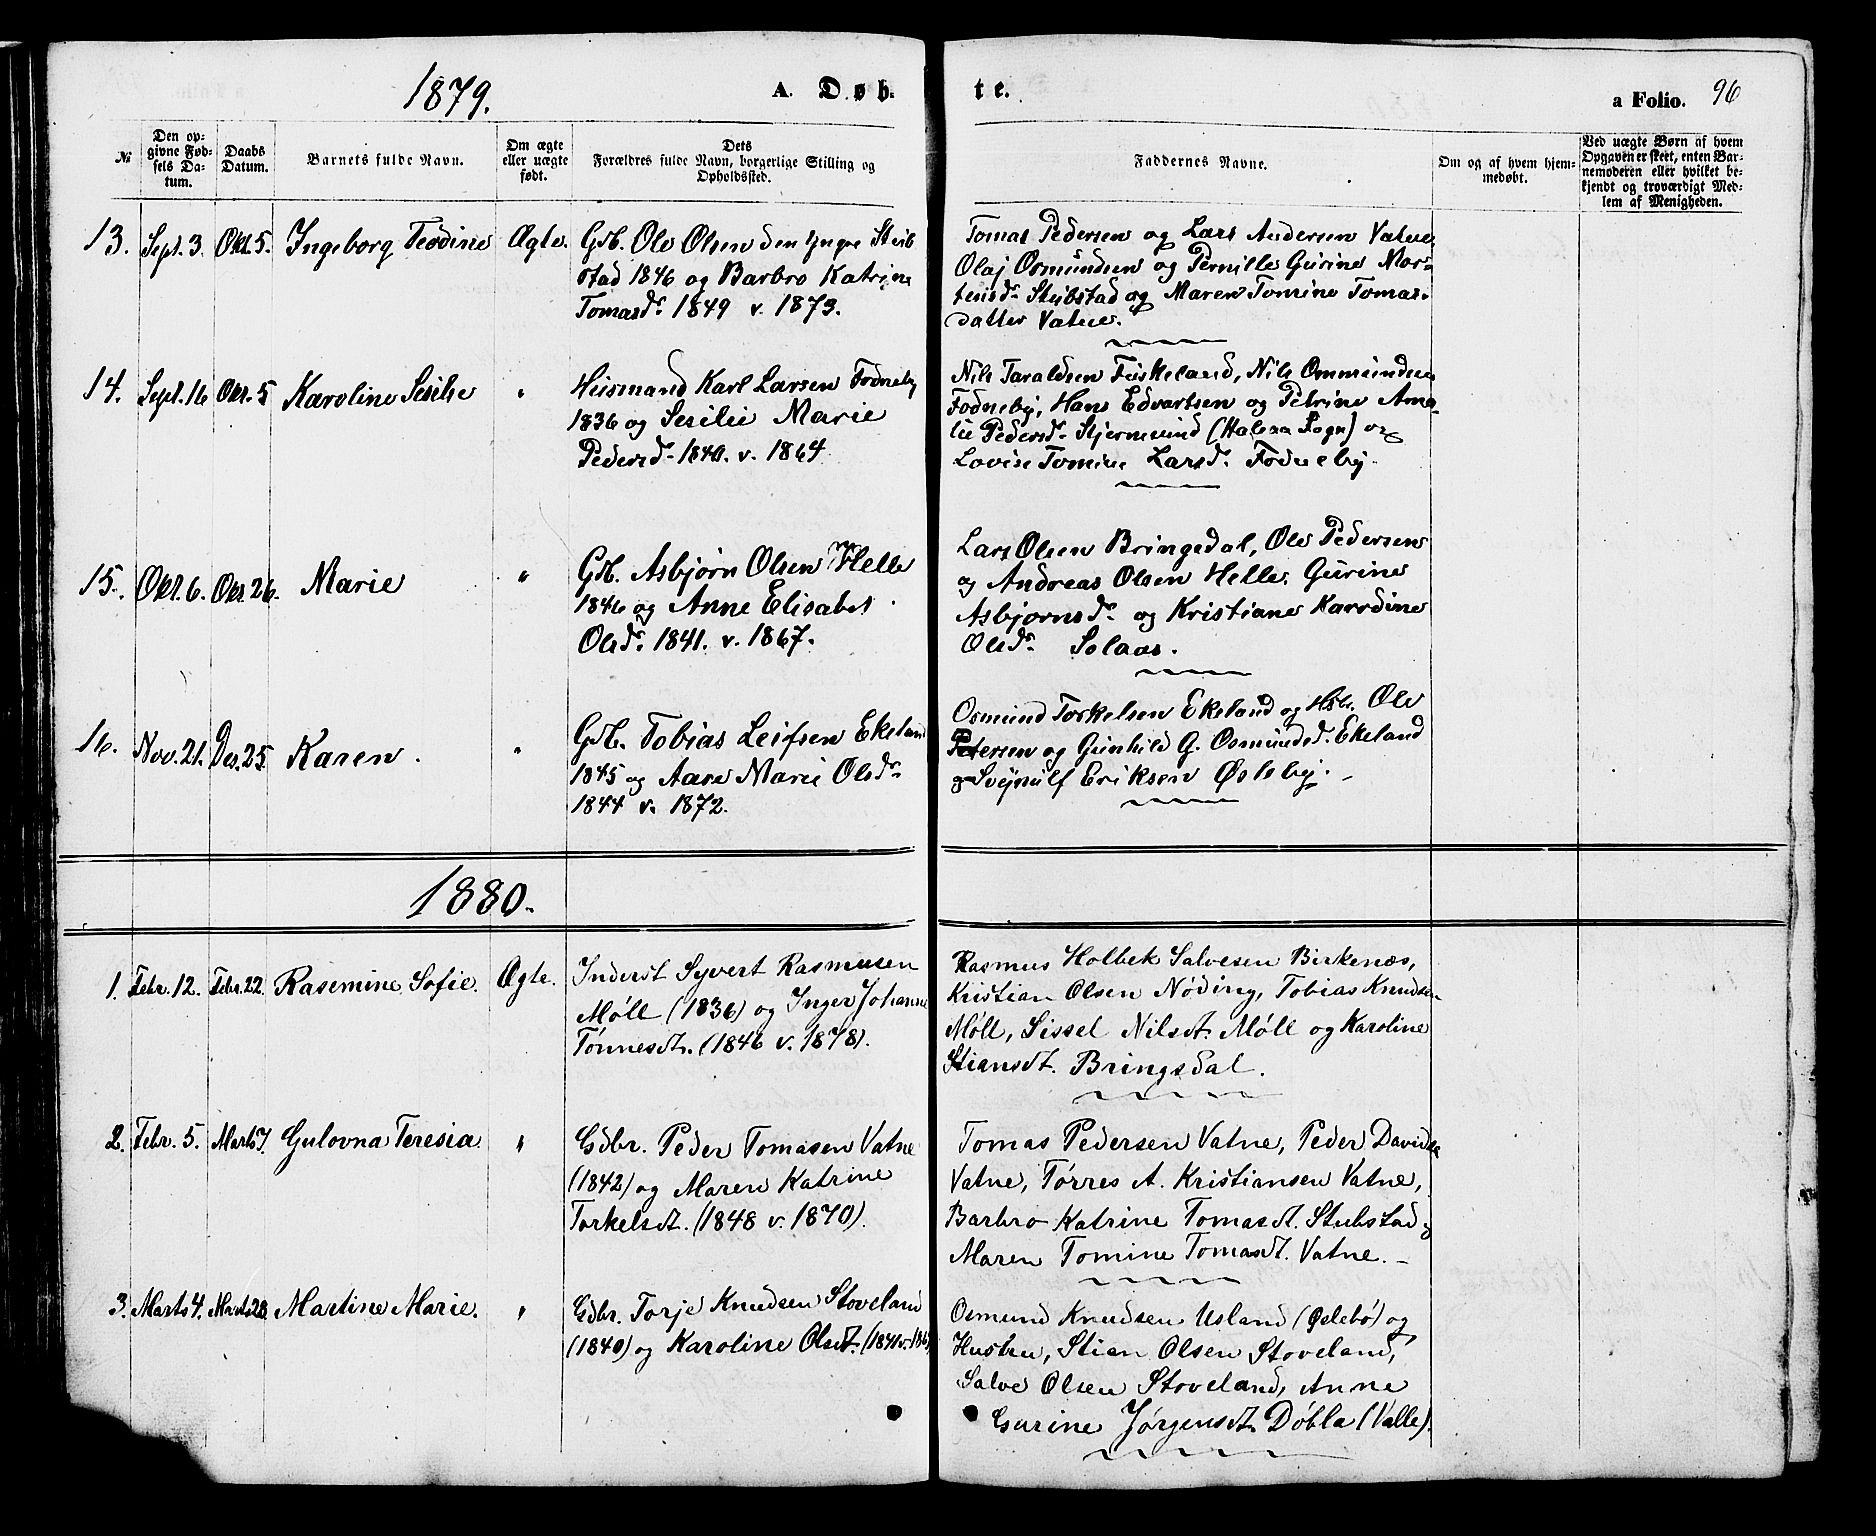 1879.
A. Døb-
te.
a Folio. 96
№
Den op-
givne Fød-
sels Da-
tum.
Daabs
Datum.
Barnets fulde Navn.
Om ægte
eller uægte
født.
Dets
Forældres fulde Navn, borgerlige Stilling og
Opholdssted.
Faddernes Navne.
Om og af hvem hjem-
medøbt.
Ved uægte Børn af hvem
Opgaven er skeet, enten Bar-
nemoderen eller hvilket be-
kjendt og troværdigt Med-
lem af Menigheden.
13. Sept. 3. Okt. 5. Ingeborg Teodine Ægte.
Gdb. Ole Olsen den yngre Stub
stad 1846 og Barbro Katrine
Tomasdr. 1849 v. 1873.
Tomas Pedersen og Lars Andersen Vatne,
Olaj Osmundsen og Pernille Gurine Mor-
tensdr. Stubstad og Maren Tomine Tomas-
datter Vatne.
14. Sept. 16 Okt. 5 Karoline Sesilie "
Husmand Karl Larsen Fodneby
1836 og Sesilie Marie
Pedersdr. 1840. v. 1864.
Nils Taraldsen Fuskeland, Nils Ommundsen
Fodneby, Hans Edvartsen og Petrine Ama-
lie Pedersdr. Stjernesund (Halsaa Sogn) og
Lovise Tomine Larsd. Fodneby.
15. Okt. 6. Okt. 26. Marie "
Gdb. Asbjørn Olsen Helle
1846 og Anne Elisabet
Olsdr. 1841. v. 1867.
Lars Olsen Bringsdal, Ole Pedersen
og Andreas Olsen Helle, Gurine
Asbjørnsdr. og Kristiane Karodine
Olsdr. Solaas.
16. Nov. 21. Des. 25 Karen. "
Gdb. Tobias Leifsen Ekeland
1845 og Aase Marie Olsdr.
1844 v. 1872.
Osmund Torkelsen Ekeland og Ole
Petersen og Gunhild G. Osmundsd. Ekeland
og Svejnulf Eriksen Øsleby.
1880.
1. Febr. 12. Febr. 22. Rasemine Sofie. Ægte.
Inderst Syvert Rasmusen
Møll (1836) og Inger Johanne
Tønnesdt. (1846 v. 1878).
Rasmus Holbek Salvesen Birkenæs,
Kristian Olsen Nøding, Tobias Knudsen
Møll, Sissel Nilsdt. Møll og Karoline
Stiansdt. Bringsdal.
2. Febr. 5. Marts 7. Gulovna Teresia. "
Gdbr. Peder Tomasen Vatne
(1842) og Maren Katrine
Torkelsdt. (1848 v. 1870).
Tomas Pedersen Vatne, Peder Davidsen
Vatne, Tørres A. Kristiansen Vatne,
Barbro Katrine Tomasdt. Stubstad og
Maren Tomine Tomasdt. Vatne.
3. Marts 4. Marts 28. Martine Marie. "
Gdbr. Torje Knudsen Stoveland
(1840) og Karoline Olsdt.
Osmund Knudsen Usland (Øslebø) og
Hustru, Stian Olsen Stoveland,
Salve Olsen Stoveland, Anne
Gurine Jørgensdt. Døbla (Valle).